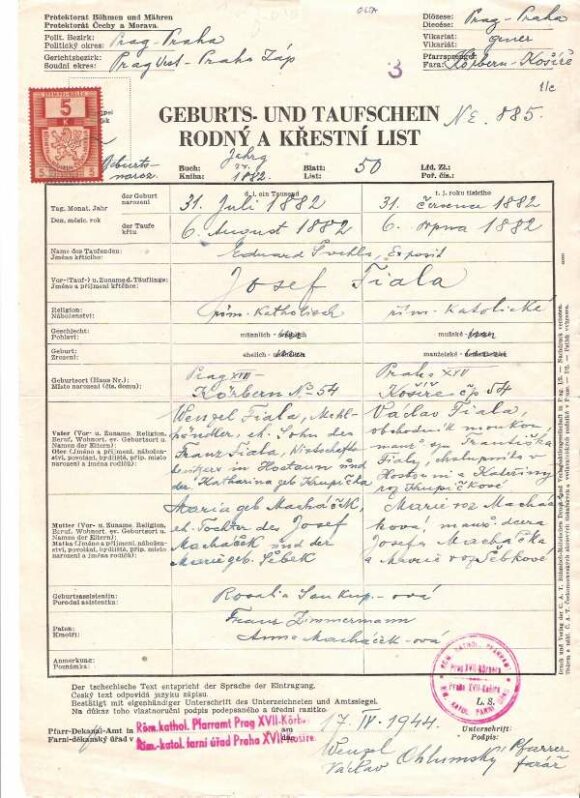 Protektorat Böhmen und Mähren
Protektorát Čechy a Morava.
Polit. Bezirk:
Politický okres: Prag-Praha
Gerichtsbezirk:
Soudní okres: Prag West-Praha Záp
Diözese:
Diecése: Prag-Praha
Vikariat:
Vikariát:
Pfarrsprengel
Fara: Körbern-Košíře
3
5
K
GEBURTS- UND TAUFSCHEIN № 885.
RODNÝ A KŘESTNÍ LIST
Buch:
Kniha: 1882.
Blatt:
List: 50
Lfd. Zl.:
Poř. čís.:
d. i. ein Tausend
t. j. roku tisícího
Tag, Monat, Jahr
Den, měsíc, rok
der Geburt
narození
31. Juli 1882
31. července 1882
der Taufe
křtu
6. August 1882
6. srpna 1882
Name des Taufenden:
Jméno křtícího:
Eduard Exposit
Vor-(Tauf-) u. Zuname d. Täuflings:
Jméno a příjmení křtěnce:
Josef Fiala
Religion:
Náboženství:
röm. Katholisch
řím. Katolické
Geschlecht:
Pohlaví:
männlich
mužské
Geburt:
Zrození:
ehelich
manželské
Geburtsort (Haus Nr.):
Místo narození (čís. domu):
Prag XVII
Körbern No 54
Praha XVII
Košíře čp 54
Vater (Vor- u. Zuname, Religion,
Beruf, Wohnort, ev. Geburtsort u.
Namen der Eltern):
Otec (Jméno a příjmení, nábožen-
ství, povolání, bydliště, příp. místo
narození a jména rodičů):
Wenzel Fiala, Mehl-
händler, eh. Sohn des
Franz Fiala, Wirtschafts-
besitzers in Hostaun und
der Katharina geb Krupička
Václav Fiala,
obchodník moukou,
manž. syn Františka
Fialy, chalupníka v
Hostouni a Kateřiny
roz Krupičkové
Mutter (Vor- u. Zuname, Religion,
Beruf, Wohnort, ev. Geburtsort u.
Namen der Eltern):
Matka (Jméno a příjmení, nábožen-
ství, povolání, bydliště, příp. místo
narození a jména rodičů):
Maria geb Macháček,
eh. Tochter des Josef
Macháček und der
Marie geb. Šebek
Marie roz Machač-
ková, manž. dcera
Josefa Macháčka
a Marie roz Šebkové
Geburtsassistentin:
Porodní assistentka:
Rosalia Soukup-ová
Paten:
Kmotři:
Franz Zimmermann
Anna Macháček-ová
Anmerkung:
Poznámka:
Der tschechische Text entspricht der Sprache der Eintragung.
Český text odpovídá jazyku zápisu.
Bestätigt mit eigenhändiger Unterschrift des Unterzeichneten und Amtssiegel.
Na důkaz toho vlastnoruční podpis podepsaného a úřední razítko.
Prag XVII-Körbern
Praha XVII-Košíře
L. S.
Pfarr-Dekanal-Amt in
Farní-děkanský úřad v
Röm. kathol. Pfarramt Prag XVII-Körbern
Řím.-katol. farní úřad Praha XVII-Košíře.
am
dne
17. IV. 1944.
Unterschrift:
Podpis:
Wenzel
Václav Ohlumský Pfarrer
farář